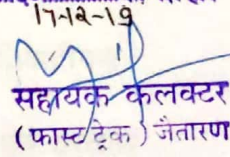 17-12-19
सहायक कलक्टर
(फास्ट ट्रेक) जैतारण